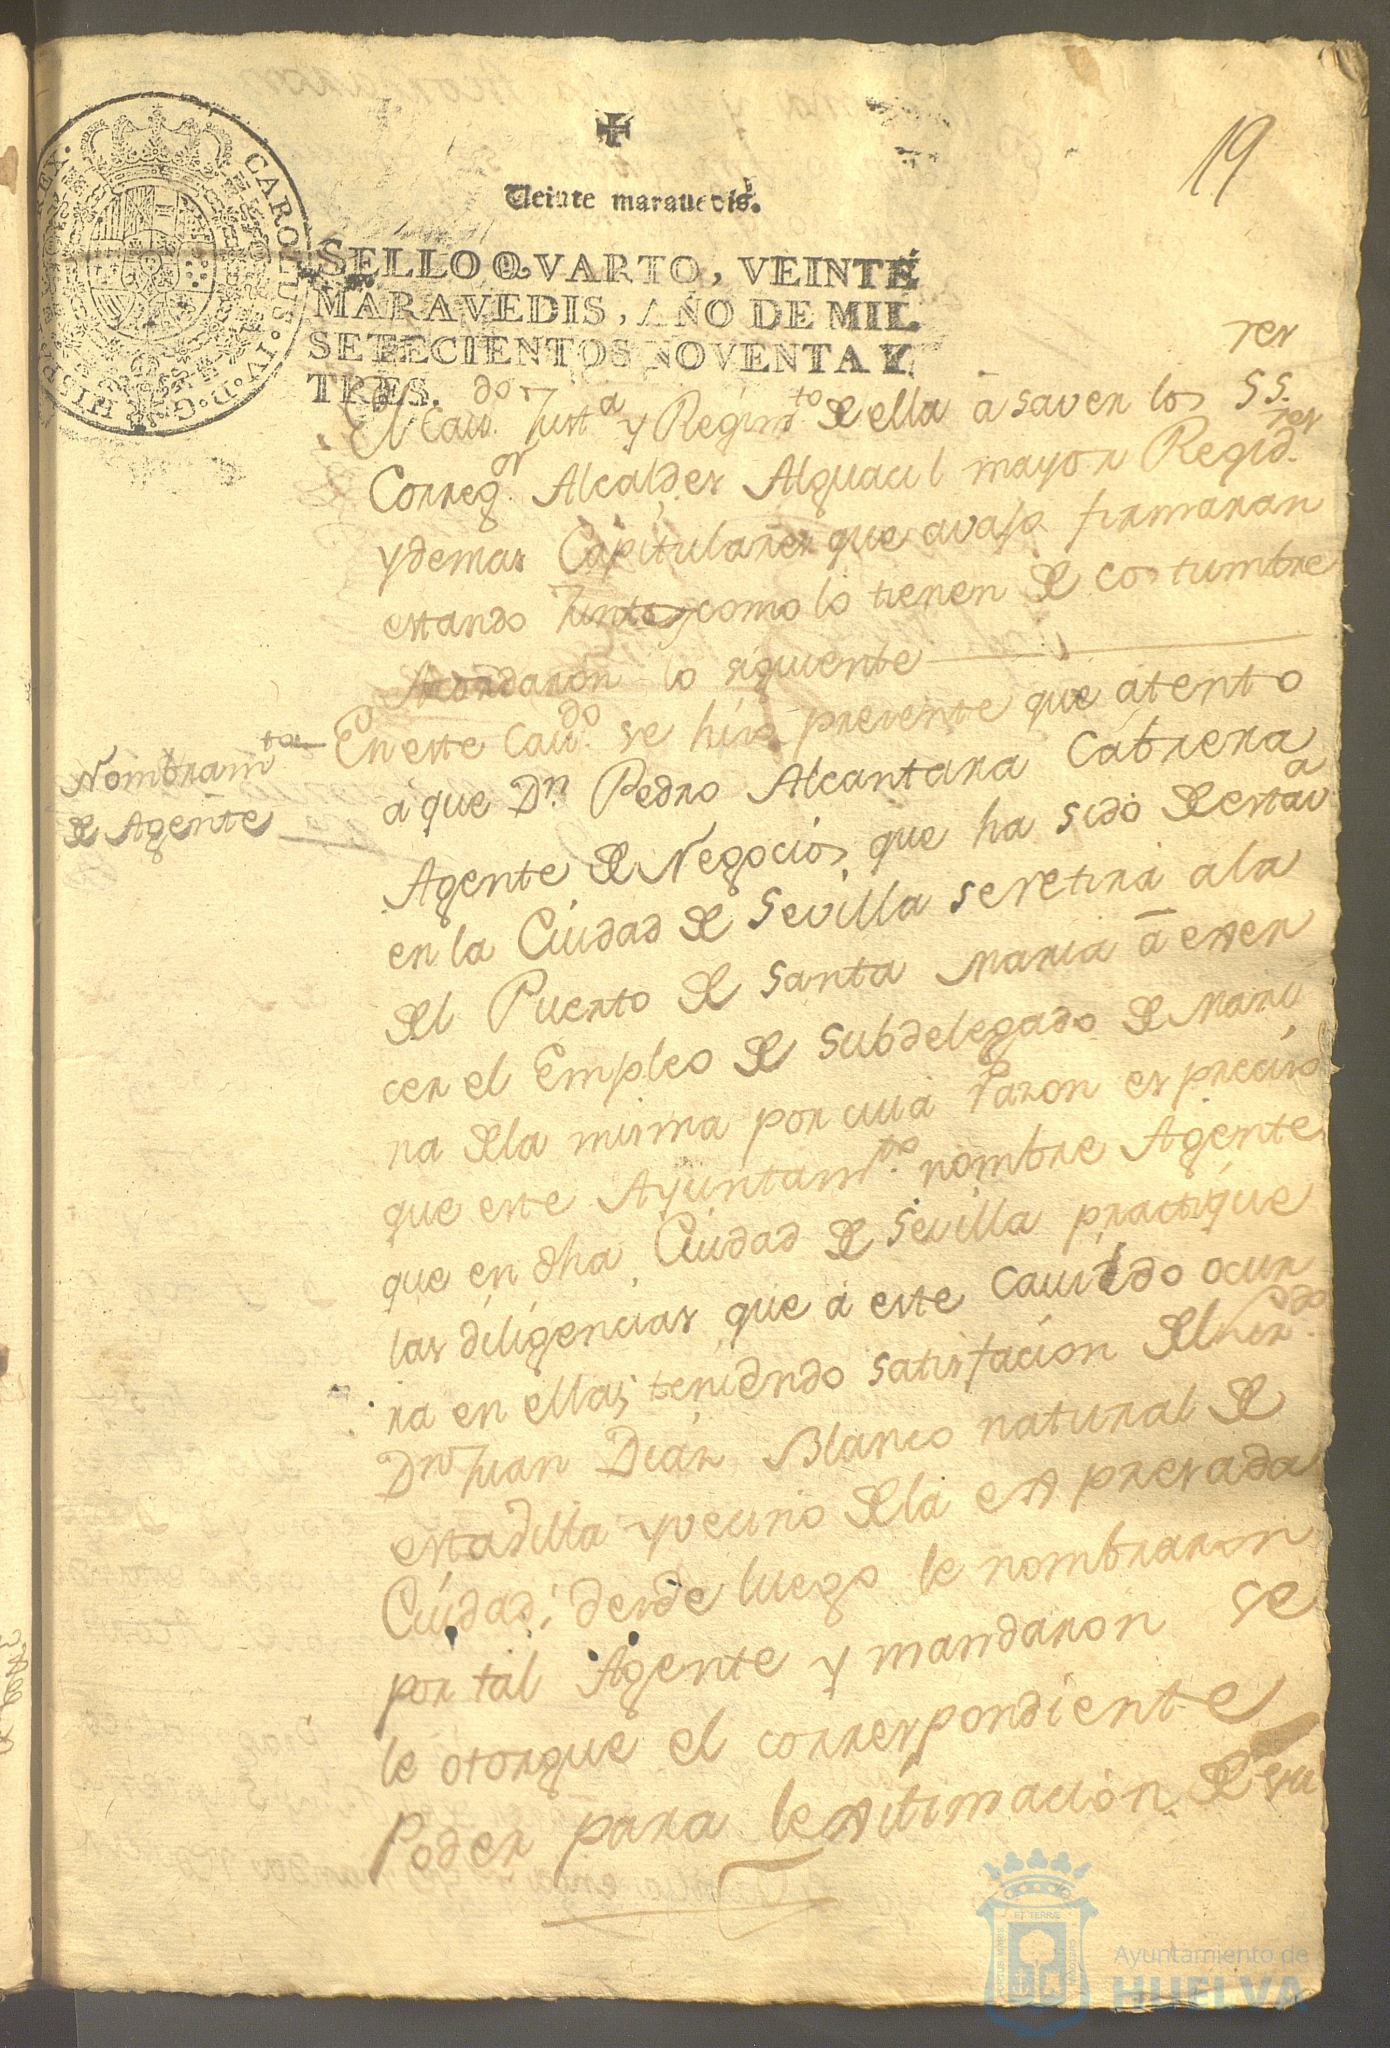 19
Veinte maravedis.
SELLO QVARTO, VEINTE
MARAVEDIS, AÑO DE MIL
SETECIENTOS NOVENTA Y
TRES.
CAROLUS·IV·D·G·HISP REX·
El Cauᵈᵒ. Justᵃ y Regimᵗᵒ de ella â saver los SSʳᵉˢ.
Corregᵒʳ. Alcaldes Alguacil mayor Regidʳᵉˢ.
y demas Capitulares que avajo firmaran
estando Juntos como lo tienen de costumbre
Acordaron lo siguiente
Nombramᵗᵒ
de Agente
En este Cauᵈᵒ. se hizo presente que atento
a que Dⁿ. Pedro Alcantara Cabrera
Agente de Negocios que ha sido de esta vᵃ
en la Ciudad de Sevilla se retira a la
del Puerto de Santa Maria â exer
cer el Empleo de Subdelegado de Mari
na de la misma por cuia razon es preciso
que este Ayuntamᵗᵒ. nombre Agente
que en dha Ciudad de Sevilla practique
las diligencias que a este Cauildo ocur
ra en ellas, teniendo satisfacion del
Dⁿ Juan Diaz Blanco natural de
esta villa y vecino de la expresada
Ciudad; desde luego le nombraron
por tal Agente y mandaron se
le otorgue el correspondiente
Poder para lexitimación de su
Ayuntamiento de
HUELVA